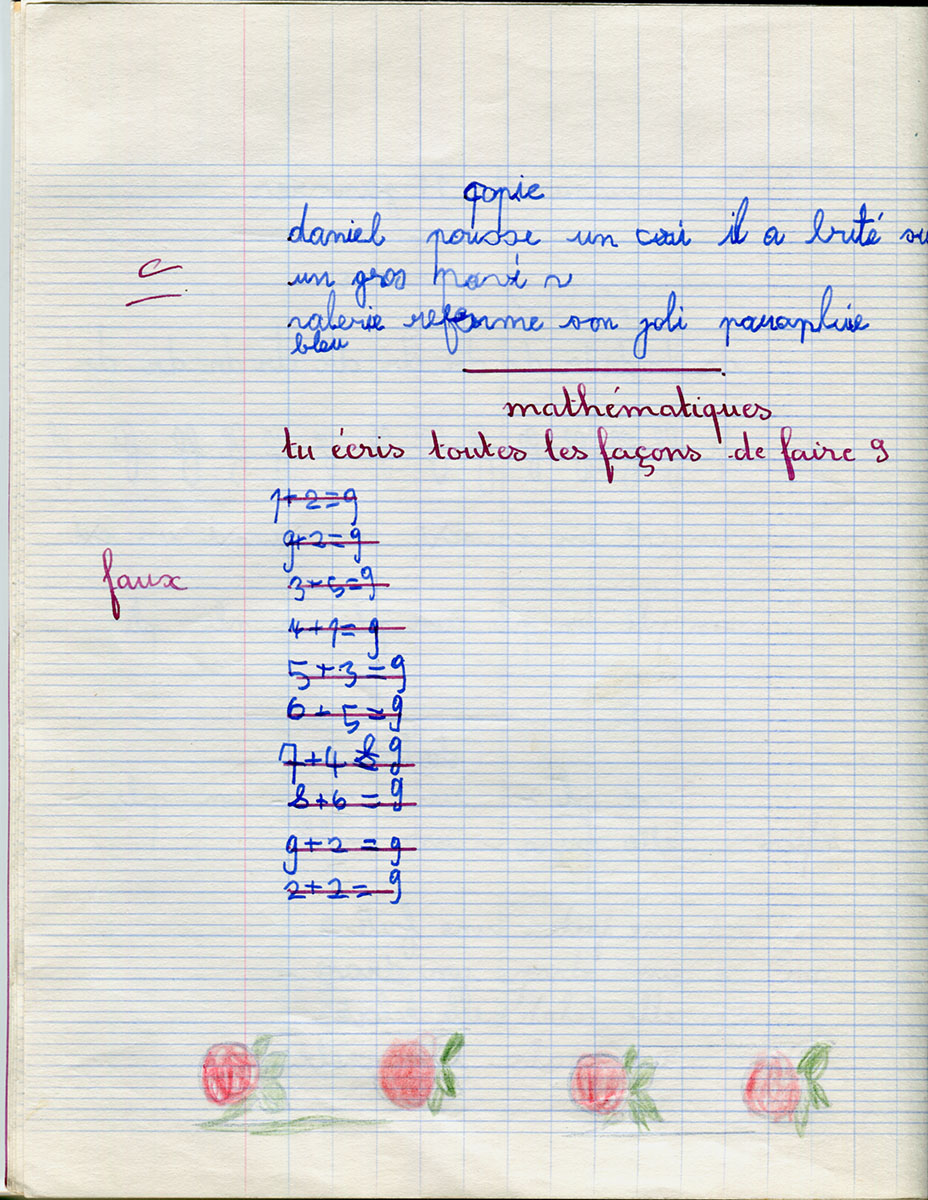 copie
daniel pousse un cri il a buté su
un gros pavé
valerie referme son joli parapluie
bleu
C
mathématiques
tu écris toutes les façons de faire 9
1+2=9
9+2=9
3+5=9
4+1=9
5+3=9
6+5=9
7+4 8 9
8+6=9
9+2=9
2+2=9
faux